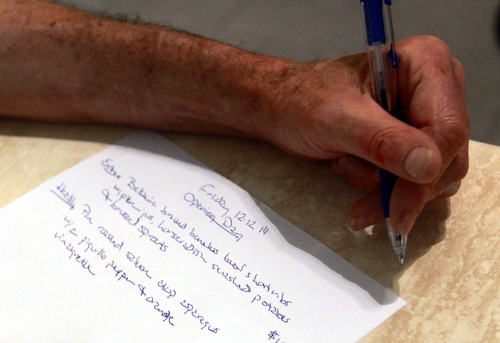 Friday 12.12.14
Opening Day
Entree Balsamic braised boneless beef short ribs
w/ horseradish smashed potatoes
& brussel sprouts
Healthy Pan roasted salmon crisp asparagus
w/ piquillo pepper & orange
vinaigrette